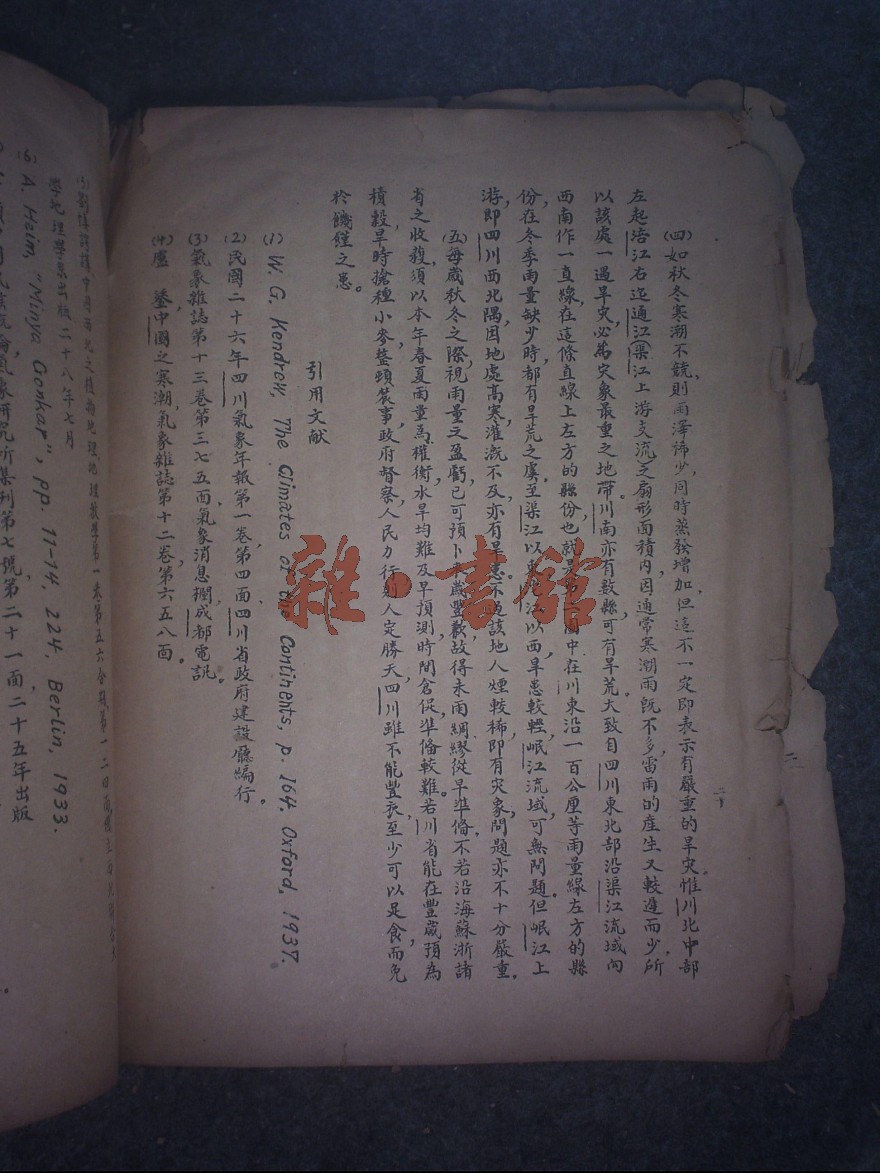 (四)如秋冬寒潮不競，則雨澤稀少，同時蒸發增加，但這不一定即表示有嚴重的旱災。惟川北中部
左起涪江右迄通江(渠江上游支流)之扇形面積内，因通常寒潮雨既不多，雷雨的產生又較遲而少，所
以該處一遇旱災，必為災象最重之地帶。川南亦有數縣可有旱荒。大致自四川東北部沿渠江流域向
西南作一直線，在這條直線上左方的縣份，也就是第 圖中在川東沿一百公厘等雨量線左方的縣
份，在冬季雨量缺少時，都有旱荒之虞。至渠江以東 江以西，旱患較輕，岷江流域，可無問題。但岷江上
游，即四川西北隅，因地處高寒，灌溉不及，亦有旱患，不過該地人煙較稀，即有災象，問題亦不十分嚴重。
(五)每歲秋冬之際，視雨量之盈虧，已可預卜 歲豐歉，故得未雨綢繆，從早準備。不若沿海蘇浙諸
省之收穫，須以本年春夏雨量為權衡，水旱均難及早預測，時間倉促，準備較難。若川省能在豐歲預為
積穀，旱時搶種小麥，整頓農事，政府督察，人民力行，則人定勝天，四川雖不能豐衣，至少可以足食，而免
於饑饉之患。
引用文献
(1) W. G. Kendrew, The Climates of the Continents, p. 164. Oxford, 1937.
(2) 民國二十六年四川氣象年報第一卷，第四面，四川省政府建設廳編行。
(3) 氣象雜誌第十三卷第三七五面，氣象消息欄成都電訊。
(4) 盧鋈，中國之寒潮，氣象雜誌第十二卷，第六五八面。
學地理學系出版，二十八年七月
(6) A. Heim, "Minya Gonkar", pp. 11-14, 224, Berlin, 1933.
氣象研究所集刊第七號，第二十一面，二十五年出版
二十
雜·書館